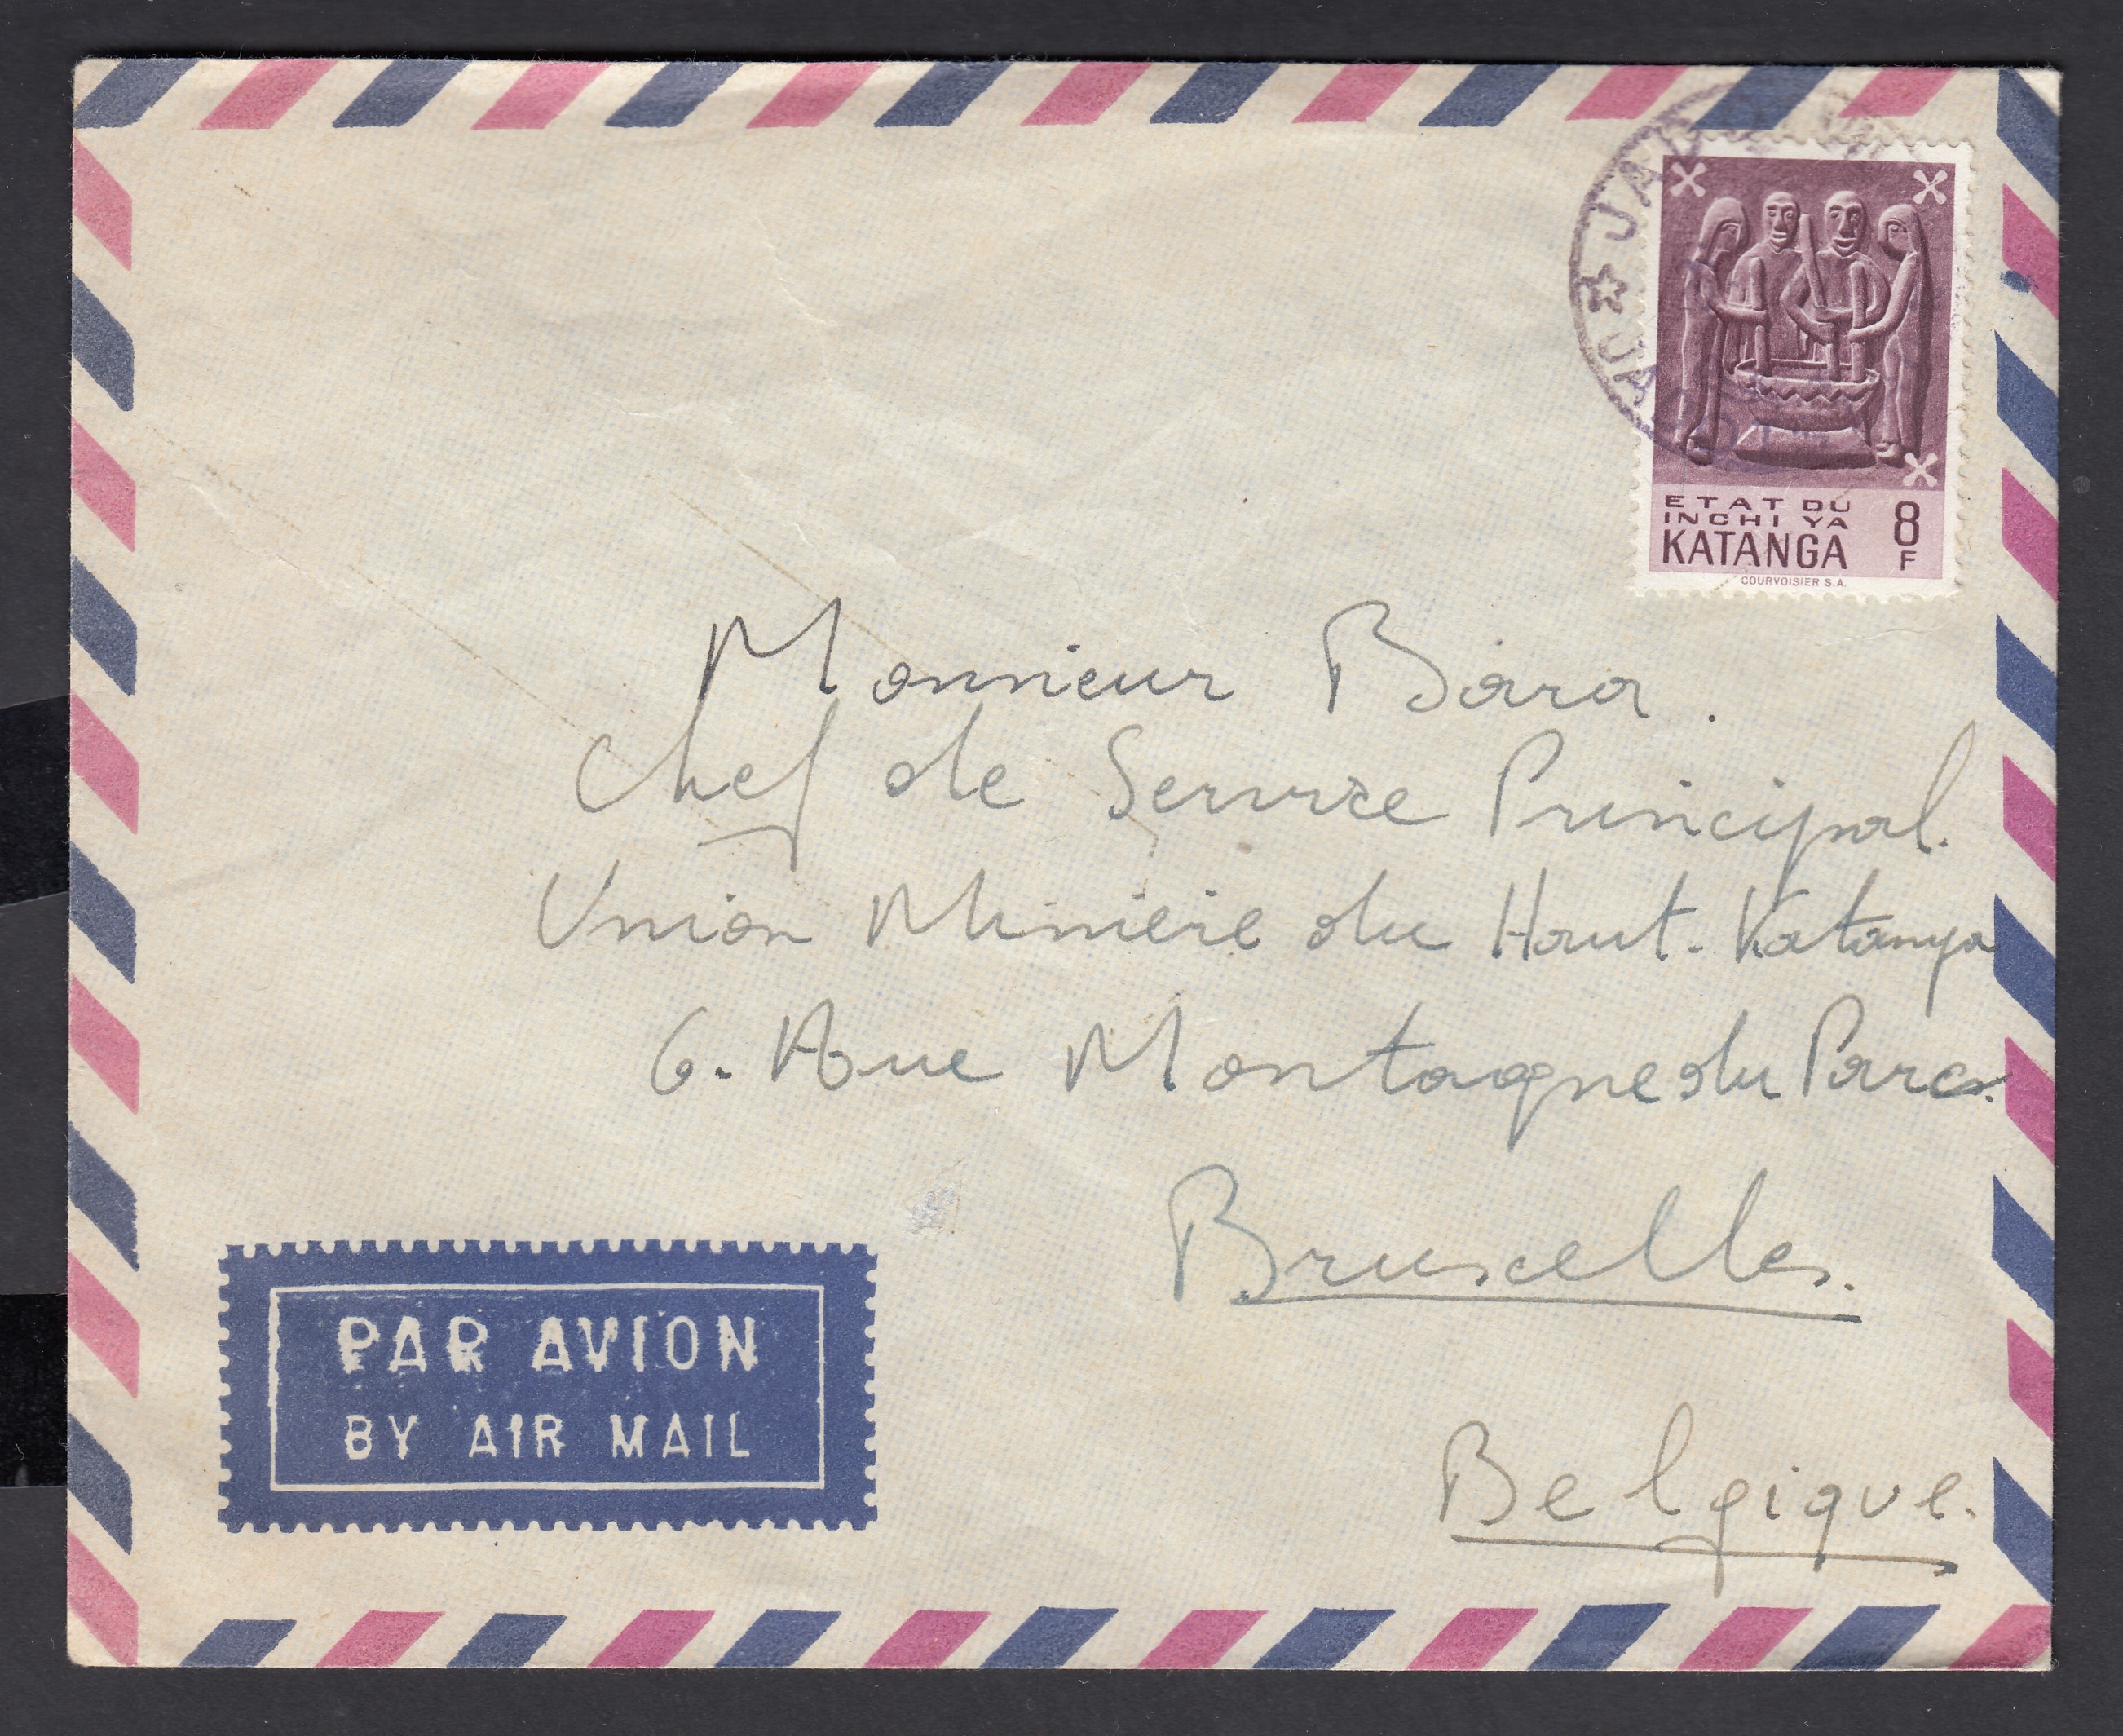 ETAT DU
INCHI YA
KATANGA
8
F
COURVOISIER S.A.
Monsieur Bara.
Chef de Service Principal.
Union Minière du Haut-Katanga
6. Rue Montagne du Parc.
Bruxelles.
Belgique.
PAR AVION
BY AIR MAIL